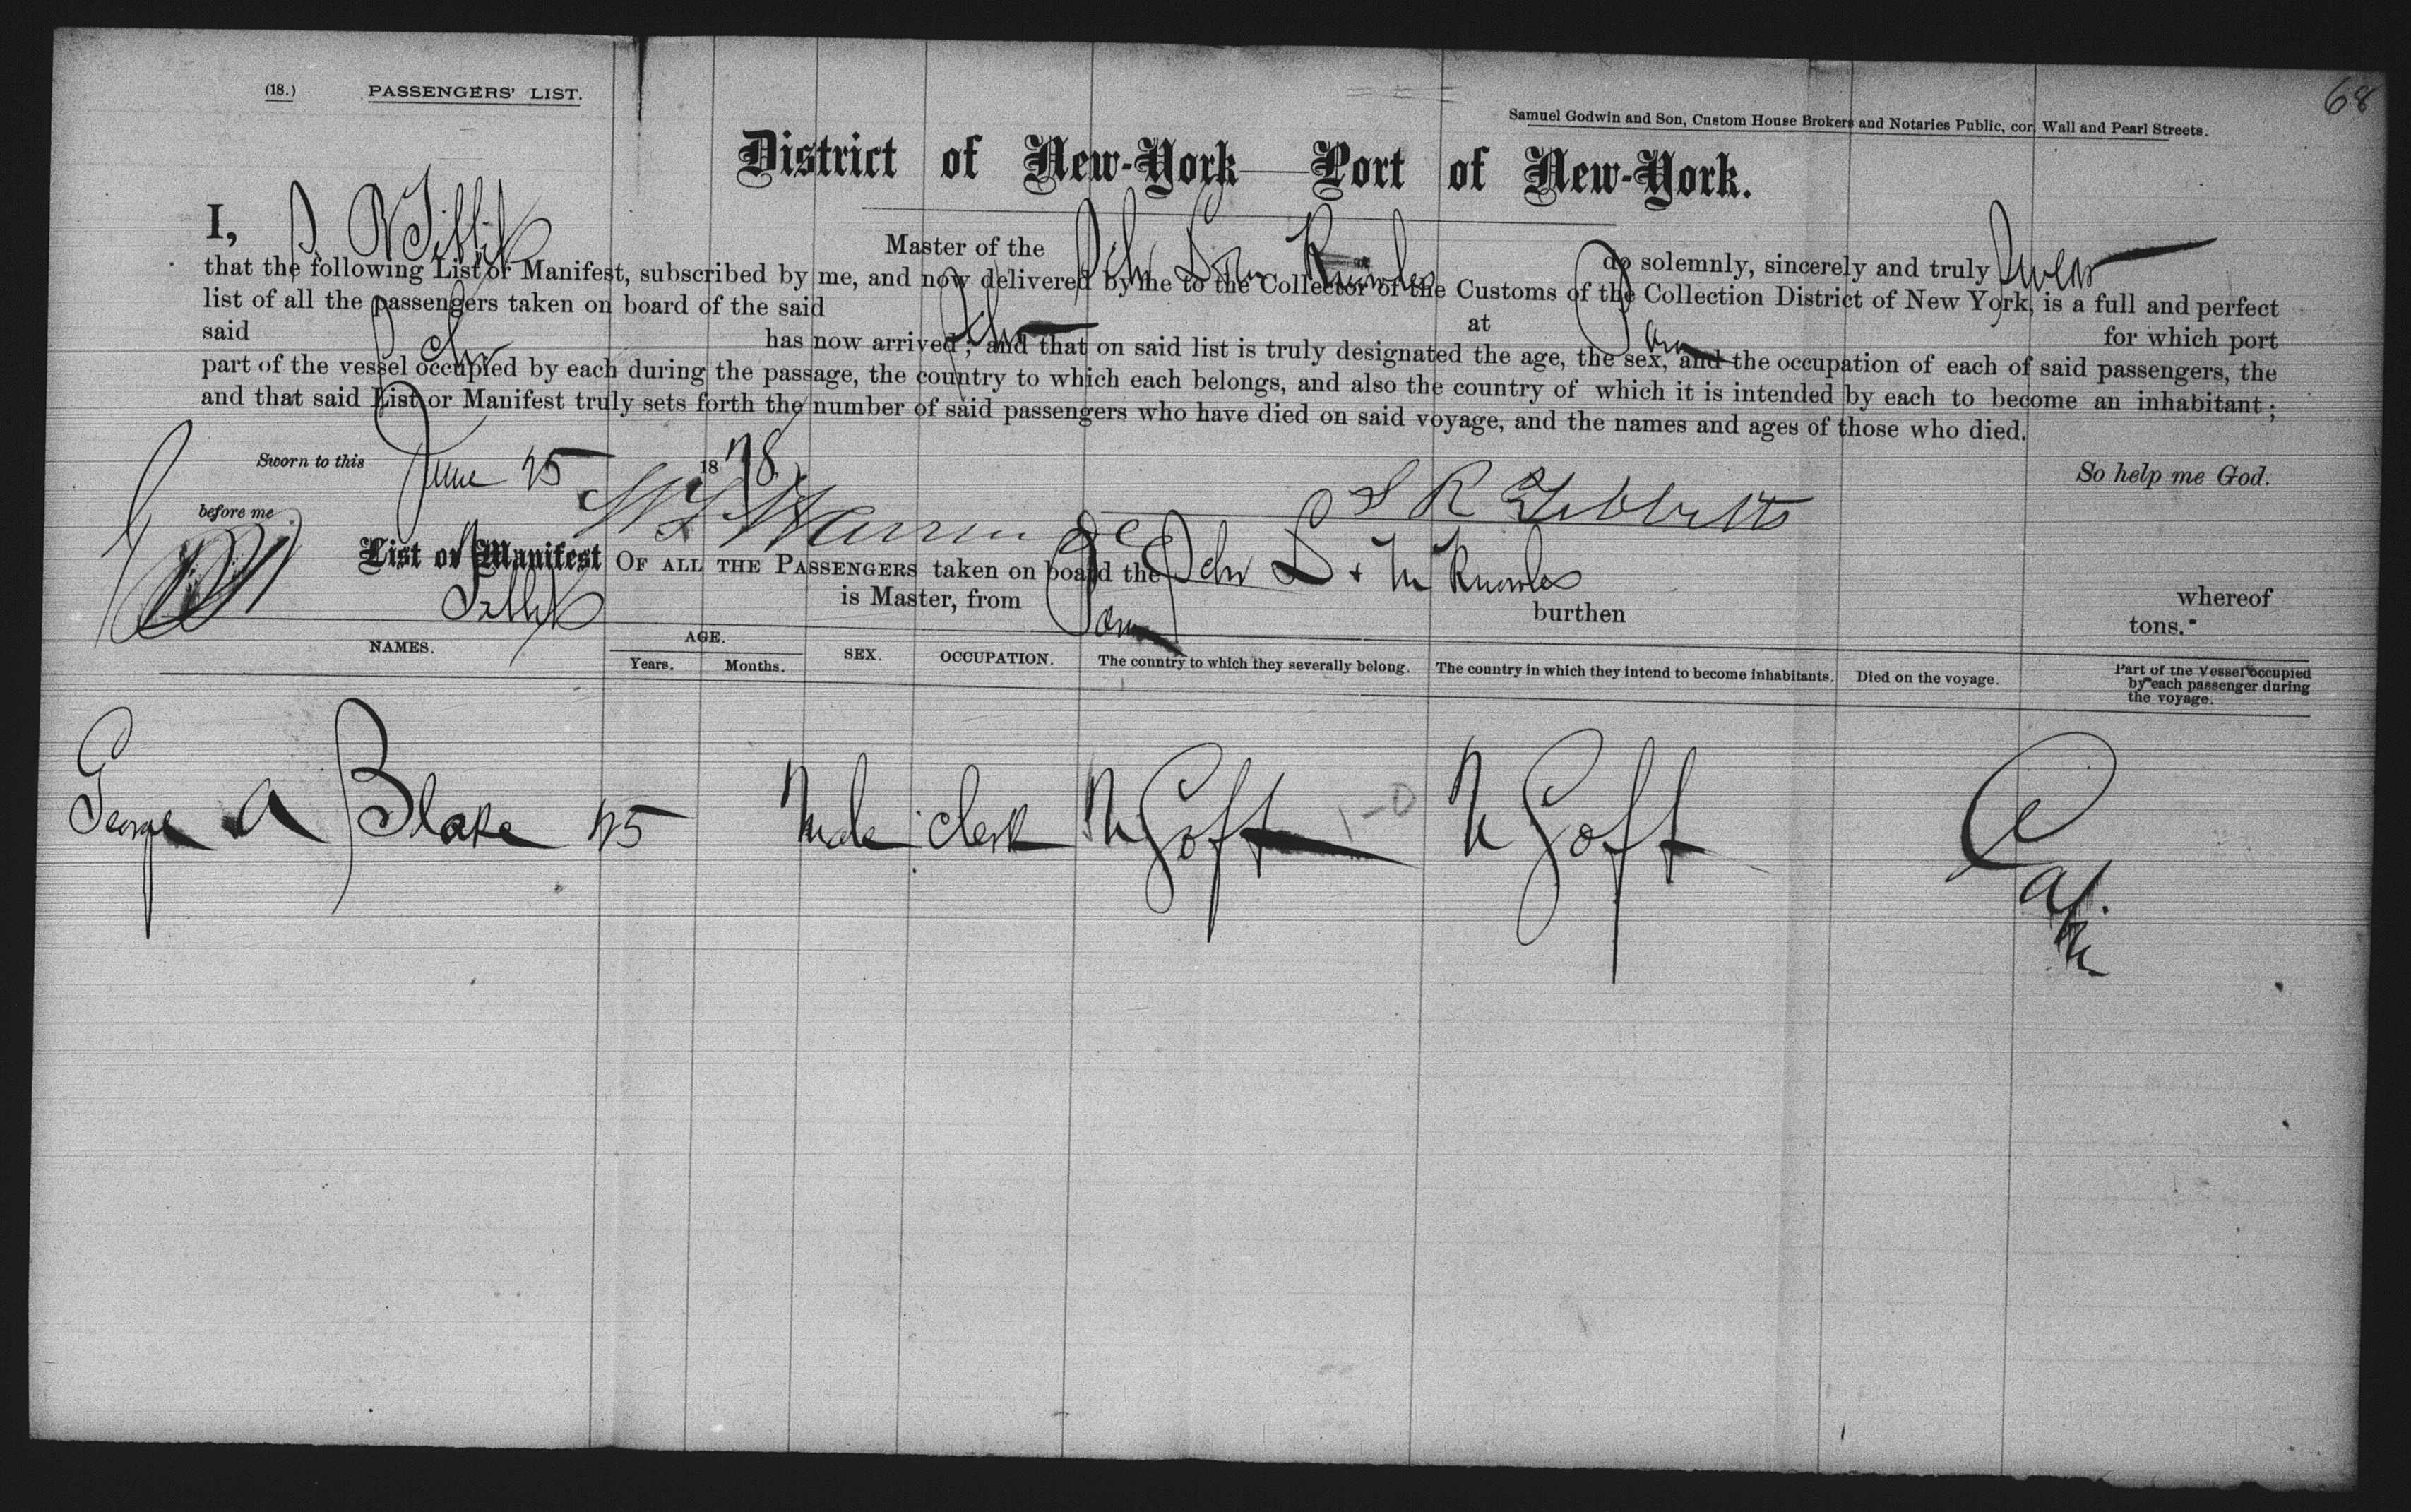 68
(18.) PASSENGERS' LIST.
Samuel Godwin and Son, Custom House Brokers and Notaries Public, cor. Wall and Pearl Streets.
District of New-York—Port of New-York.
I, S R Tibbits Master of the Schr L & M Knowles do solemnly, sincerely and truly swear
that the following List or Manifest, subscribed by me, and now delivered by me to the Collector of the Customs of the Collection District of New York, is a full and perfect
list of all the passengers taken on board of the said Schr at
said Schr has now arrived; and that on said list is truly designated the age, the sex, and the occupation of each of said passengers, the for which port
part of the vessel occupied by each during the passage, the country to which each belongs, and also the country of which it is intended by each to become an inhabitant;
and that said List or Manifest truly sets forth the number of said passengers who have died on said voyage, and the names and ages of those who died.
So help me God.
Sworn to this June 25 1878
before me
S R Tibbetts
List or Manifest OF ALL THE PASSENGERS taken on board the Schr L & M Knowles whereof
Tibbits is Master, from burthen tons.
NAMES. AGE. Years. Months. SEX. OCCUPATION. The country to which they severally belong. The country in which they intend to become inhabitants. Died on the voyage. Part of the Vessel occupied by each passenger during the voyage.
George A Blake 25 Male Clerk 1-0 Cabin